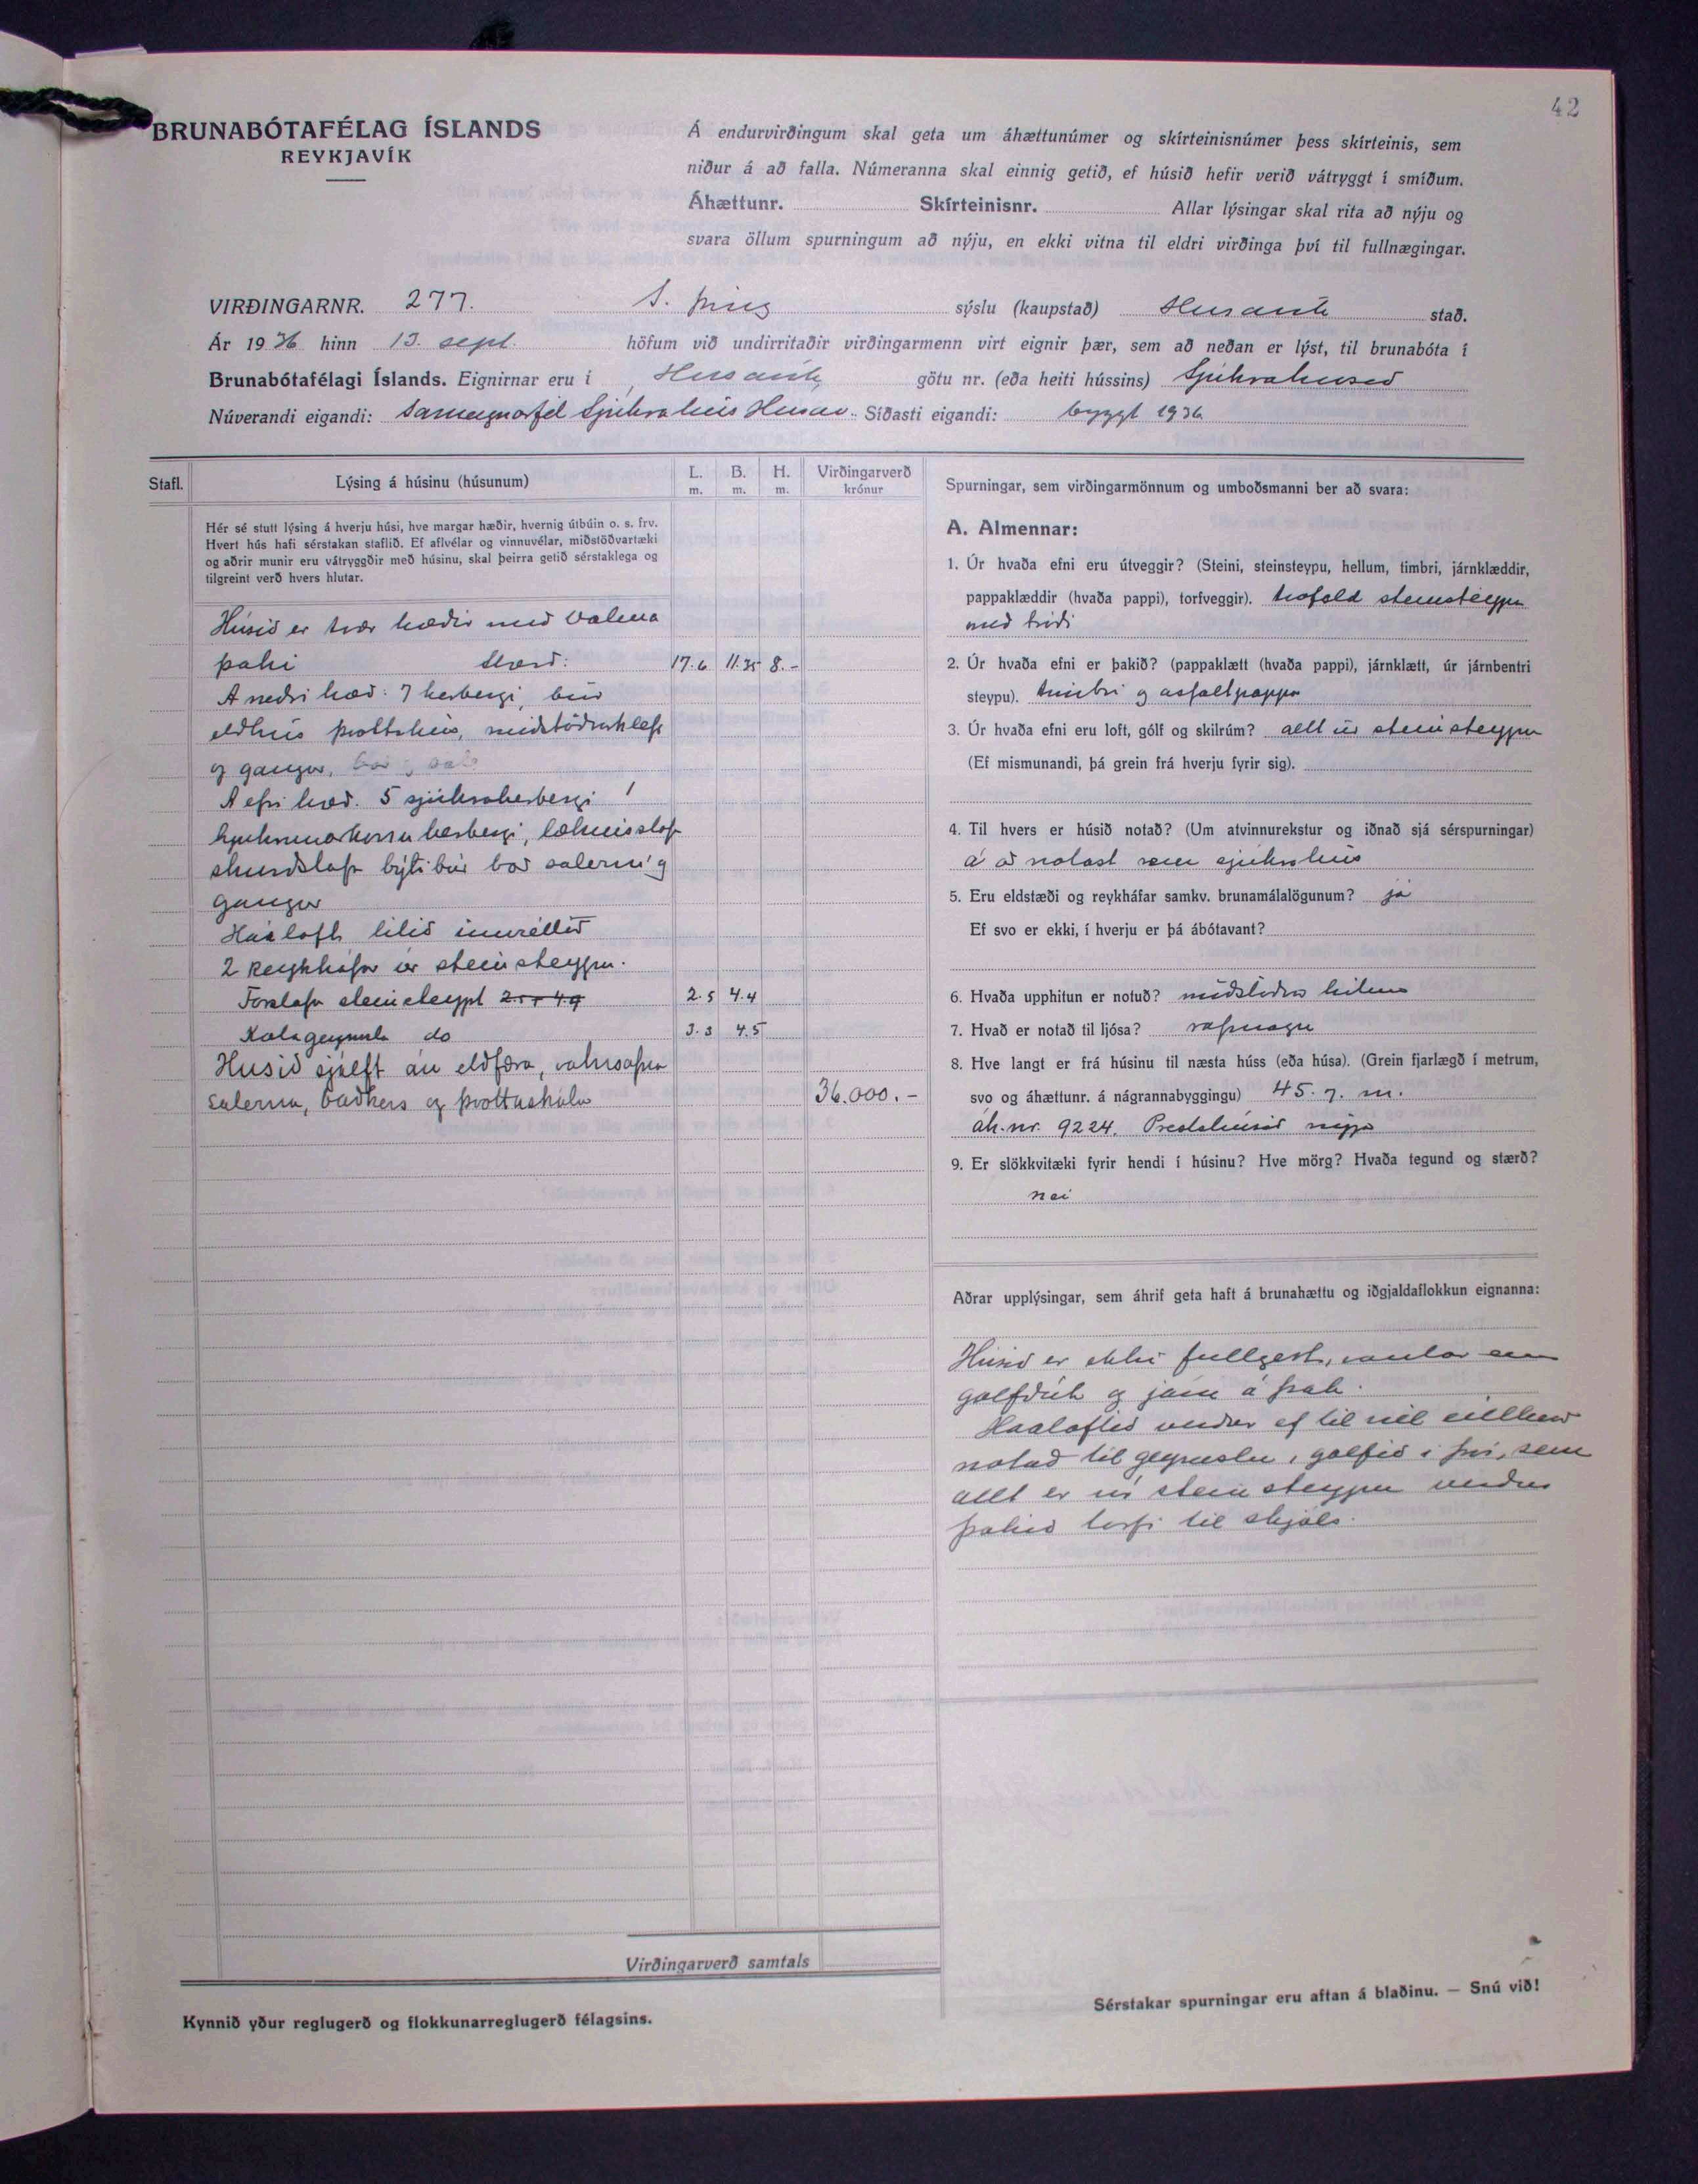 42
BRUNABÓTAFÉLAG ÍSLANDS
REYKJAVÍK
Á endurvirðingum skal geta um áhættunúmer og skírteinisnúmer þess skírteinis, sem
niður á að falla. Númeranna skal einnig getið, ef húsið hefir verið vátryggt í smíðum.
Áhættunr. Skírteinisnr. Allar lýsingar skal rita að nýju og
svara öllum spurningum að nýju, en ekki vitna til eldri virðinga því til fullnægingar.
VIRÐINGARNR. 277. S. þing sýslu (kaupstað) Husavik stað.
Ár 1936 hinn 13. sept. höfum við undirritaðir virðingarmenn virt eignir þær, sem að neðan er lýst, til brunabóta í
Brunabótafélagi Íslands. Eignirnar eru í Husavik götu nr. (eða heiti hússins) Sjúkrahusið
Núverandi eigandi: Sameignarfél Sjúkrahús Husav. Síðasti eigandi: byggt 1936
Stafl. Lýsing á húsinu (húsunum) L. m. B. m. H. m. Virðingarverð krónur
Hér sé stutt lýsing á hverju húsi, hve margar hæðir, hvernig útbúin o. s. frv.
Hvert hús hafi sérstakan staflið. Ef aflvélar og vinnuvélar, miðstöðvartæki
og aðrir munir eru vátryggðir með húsinu, skal þeirra getið sérstaklega og
tilgreint verð hvers hlutar.
Húsið er tvær hæðir með valma
þaki Stærð: 17.6 11.35 8.-
A neðri hæð: 7 herbergi, búr
eldhús þvottahús, miðstöðvarklefi
og gangur,
A efri hæð. 5 sjúkraherbergi 1
hjukrunarkonu herbergi, læknisstofa
skurðstofa býtibúr bað salerni og
gangur
Háaloft lítið innréttað
2 Reykháfar úr steinsteypu.
Forstofa steinsteypt 2.5 4.4
Kolageymsla do 3.3 4.5
Husið sjálft án eldfæra, vatnsafna
salerna, baðkers og þvottaskála 36.000.-
Virðingarverð samtals
Kynnið yður reglugerð og flokkunarreglugerð félagsins.
Spurningar, sem virðingarmönnum og umboðsmanni ber að svara:
A. Almennar:
1. Úr hvaða efni eru útveggir? (Steini, steinsteypu, hellum, timbri, járnklæddir,
pappaklæddir (hvaða pappi), torfveggir). tvöföld steinsteypa
með tróði
2. Úr hvaða efni er þakið? (pappaklætt (hvaða pappi), járnklætt, úr járnbentri
steypu). timbri og asfaltpappa
3. Úr hvaða efni eru loft, gólf og skilrúm? allt úr steinsteypu
(Ef mismunandi, þá grein frá hverju fyrir sig).
4. Til hvers er húsið notað? (Um atvinnurekstur og iðnað sjá sérspurningar)
á að notast sem sjúkrahús
5. Eru eldstæði og reykháfar samkv. brunamálalögunum? já
Ef svo er ekki, í hverju er þá ábótavant?
6. Hvaða upphitun er notuð? miðstöðvar hitun
7. Hvað er notað til ljósa? rafmagn
8. Hve langt er frá húsinu til næsta húss (eða húsa). (Grein fjarlægð í metrum,
svo og áhættunr. á nágrannabyggingu) 45.7. m.
áh.nr. 9224. Prestshúsið nýja
9. Er slökkvitæki fyrir hendi í húsinu? Hve mörg? Hvaða tegund og stærð?
nei
Aðrar upplýsingar, sem áhrif geta haft á brunahættu og iðgjaldaflokkun eignanna:
Húsið er ekki fullgert, vantar enn
gólfdúk og járn á þak.
Haaloftið verður ef til vill eitthvað
notað til geymslu, golfið í því, sem
allt er úr steinsteypu verður
þakið torfi til skjóls.
Sérstakar spurningar eru aftan á blaðinu. — Snú við!